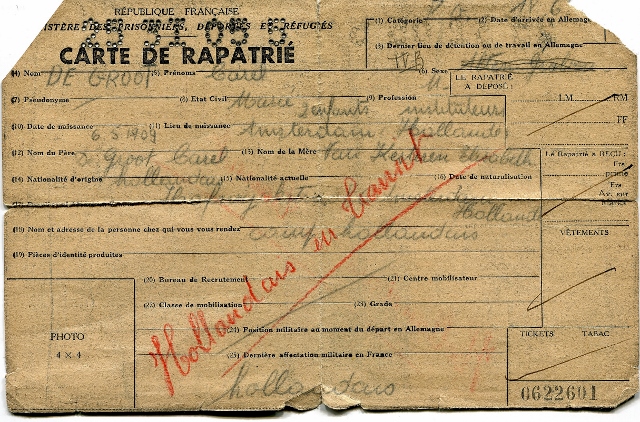 RÉPUBLIQUE FRANÇAISE
MINISTÈRE DES PRISONNIERS, DÉPORTÉS ET RÉFUGIÉS
CARTE DE RAPATRIÉ
(1) Catégorie
(2) Date d'arrivée en Allemagne
(3) Dernier lieu de détention ou de travail en Allemagne
(4) Nom DE GROOT (5) Prénoms Carel (6) Sexe M
(7) Pseudonyme (8) Etat Civil Marié 2 enfants (9) Profession instituteur
(10) Date de naissance 6.5.1909 (11) Lieu de naissance Amsterdam Hollande
(12) Nom du Père De Groot Carel (13) Nom de la Mère Elisabeth
(14) Nationalité d'origine hollandais (15) Nationalité actuelle (16) Date de naturalisation
Hollande
(18) Nom et adresse de la personne chez qui vous vous rendez camp hollandais
(19) Pièces d'identité produites
(20) Bureau de Recrutement (21) Centre mobilisateur
(22) Classe de mobilisation (23) Grade
(24) Position militaire au moment du départ en Allemagne
(25) Dernière affectation militaire en France
hollandais
Hollandais en transit
PHOTO
4 × 4
LE RAPATRIÉ
A DÉPOSÉ :
LM RM
FF
Le Rapatrié a REÇU :
Frs
prime
Frs
Av. sur
Marks
VÊTEMENTS
TICKETS TABAC
0622601